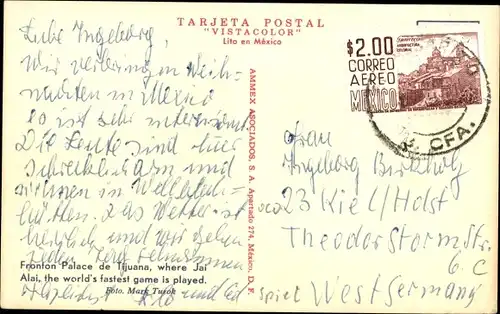 TARJETA POSTAL
"VISTACOLOR"
Lito en México
Liebe Ingeborg,
wir verbringen Weih-
nachten in México
es ist sehr interessant
Die Leute sind hier
schrecklich arm und
wohnen in Wellblech-
hütten. Das Wetter ist
herrlich und wir gehen
jeden Tag schwimmen
Fronton Palace de Tijuana, where Jai
Alai, the world's fastest game is played.
Foto. Mark Turok
und
AMMEX ASOCIADOS, S. A. Apartado 274, México, D. F.
$2.00
CORREO
AEREO
MEXICO
CFA.
Frau
Ingeborg
23 Kiel/Holst
Theodor Storm Str.
6 C
West Germany